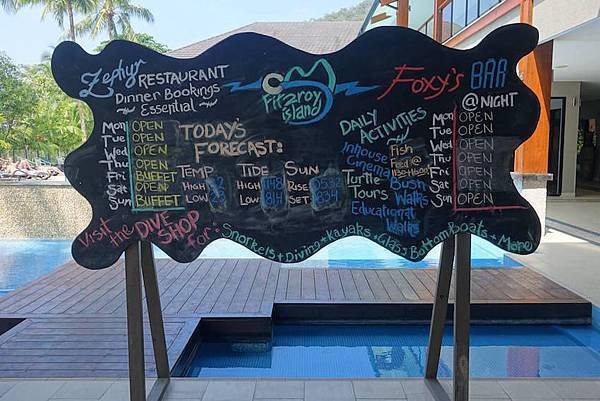 Zephyr RESTAURANT
Dinner Bookings
~ Essential ~
Mon OPEN
Tue OPEN
Wed OPEN
Thu OPEN
Fri BUFFET
Sat OPEN
Sun BUFFET
Fitzroy
island
TODAY'S
FORECAST:
TEMP TIDE SUN
HIGH HIGH RISE
LOW LOW SET
DAILY
ACTIVITIES
Inhouse
Cinema
Turtle
Tours
Educational
Walks
Fish
Feed @
Bush
Walks
FOXY'S BAR
@ NIGHT
Mon OPEN
Tue OPEN
Wed OPEN
Thu OPEN
Fri OPEN
Sat OPEN
Sun OPEN
Visit the DIVE SHOP for: Snorkels + Diving + Kayaks + Glass Bottom Boats + More!